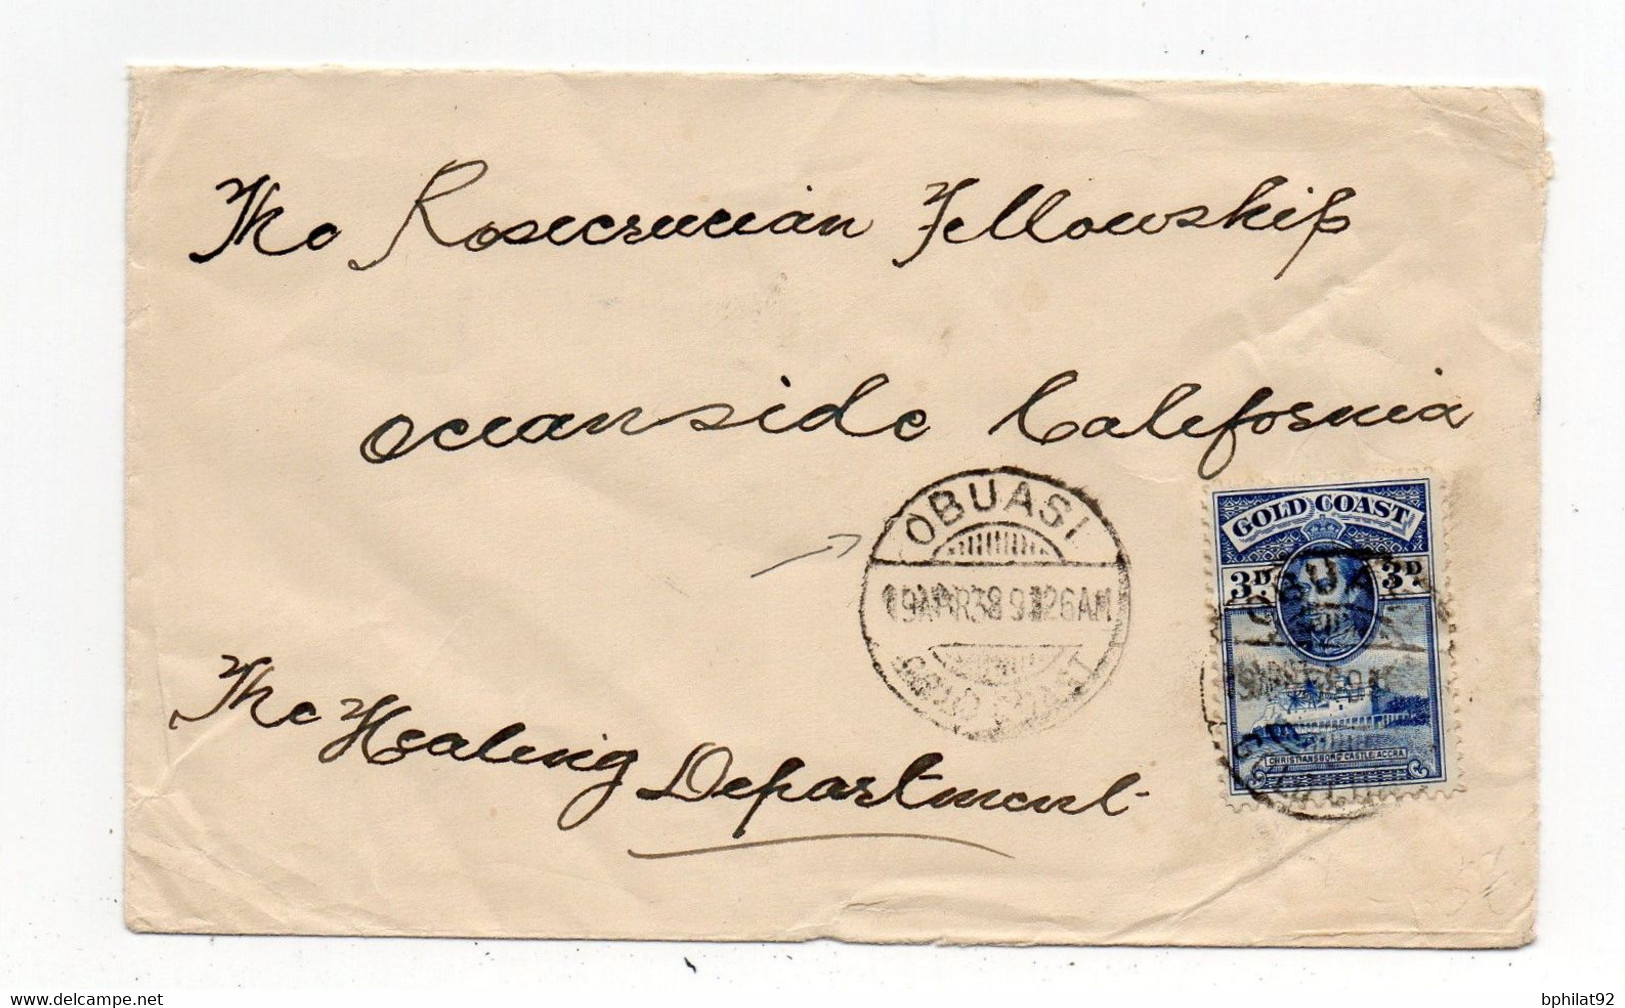 The Rosecrucian Fellowship
oceanside California
OBUASI
19 APR 38 9 26AM
GOLD COAST
GOLD COAST
3D 3D
OBUA
CHRISTIANSBORG CASTLE, ACCRA
The Healing Department
delcampe.net
bphilat92